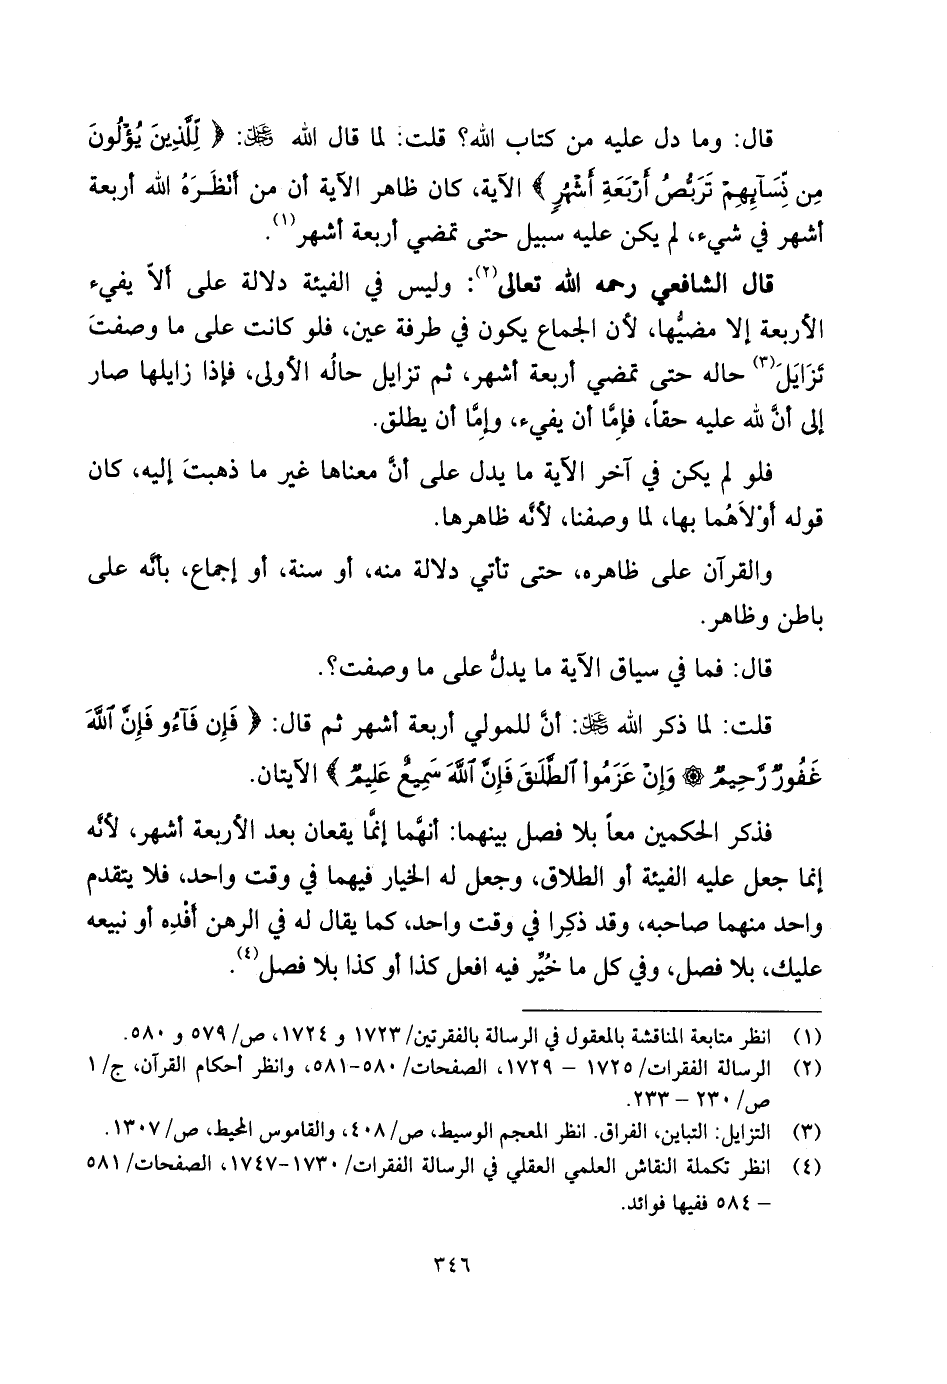 قال: وما دل عليه من كتاب الله؟ قلت: لما قال الله ﷻ: ﴿ لِّلَّذِينَ يُؤْلُونَ
مِن نِّسَآئِهِمْ تَرَبُّصُ أَرْبَعَةِ أَشْهُرٍ ﴾ الآية، كان ظاهر الآية أن من أَنْظَرَهُ الله أربعة
أشهر في شيء، لم يكن عليه سبيل حتى تمضي أربعة أشهر(١).
قال الشافعي رحمه الله تعالى(٢): وليس في الفيئة دلالة على ألاّ يفيء
الأربعة إلا مضيُّها، لأن الجماع يكون في طرفة عين، فلو كانت على ما وصفتَ
تَزَايَلَ(٣) حاله حتى تمضي أربعة أشهر، ثم تزايل حالُه الأولى، فإذا زايلها صار
إلى أنَّ لله عليه حقاً، فإمَّا أن يفيء، وإمَّا أن يطلق.
فلو لم يكن في آخر الآية ما يدل على أنَّ معناها غير ما ذهبتَ إليه، كان
قوله أَوْلاَهُما بها، لما وصفنا، لأنَّه ظاهرها.
والقرآن على ظاهره، حتى تأتي دلالة منه، أو سنة، أو إجماع، بأنَّه على
باطن وظاهر.
قال: فما في سياق الآية ما يدلُّ على ما وصفت؟.
قلت: لما ذكر الله ﷻ: أنَّ للمولي أربعة أشهر ثم قال: ﴿ فَإِن فَآءُو فَإِنَّ ٱللَّهَ
غَفُورٌ رَّحِيمٌ ۞ وَإِنْ عَزَمُوا۟ ٱلطَّلَٰقَ فَإِنَّ ٱللَّهَ سَمِيعٌ عَلِيمٌ ﴾ الآيتان.
فذكر الحكمين معاً بلا فصل بينهما: أنهَّما إنمَّا يقعان بعد الأربعة أشهر، لأنَّه
إنما جعل عليه الفيئة أو الطلاق، وجعل له الخيار فيهما في وقت واحد، فلا يتقدم
واحد منهما صاحبه، وقد ذكِرا في وقت واحد، كما يقال له في الرهن أفْدِه أو نبيعه
عليك، بلا فصل، وفي كل ما خُيِّر فيه افعل كذا أو كذا بلا فصل(٤).
(١) انظر متابعة المناقشة بالمعقول في الرسالة بالفقرتين/ ١٧٢٣ و ١٧٢٤، ص/ ٥٧٩ و ٥٨٠.
(٢) الرسالة الفقرات/ ١٧٢٥ – ١٧٢٩، الصفحات/ ٥٨٠-٥٨١، وانظر أحكام القرآن، ج/ ١
ص/ ٢٣٠ – ٢٣٣.
(٣) التزايل: التباين، الفراق. انظر المعجم الوسيط، ص/ ٤٠٨، والقاموس المحيط، ص/ ١٣٠٧.
(٤) انظر تكملة النقاش العلمي العقلي في الرسالة الفقرات/ ١٧٣٠-١٧٤٧، الصفحات/ ٥٨١
– ٥٨٤ ففيها فوائد.
٣٤٦